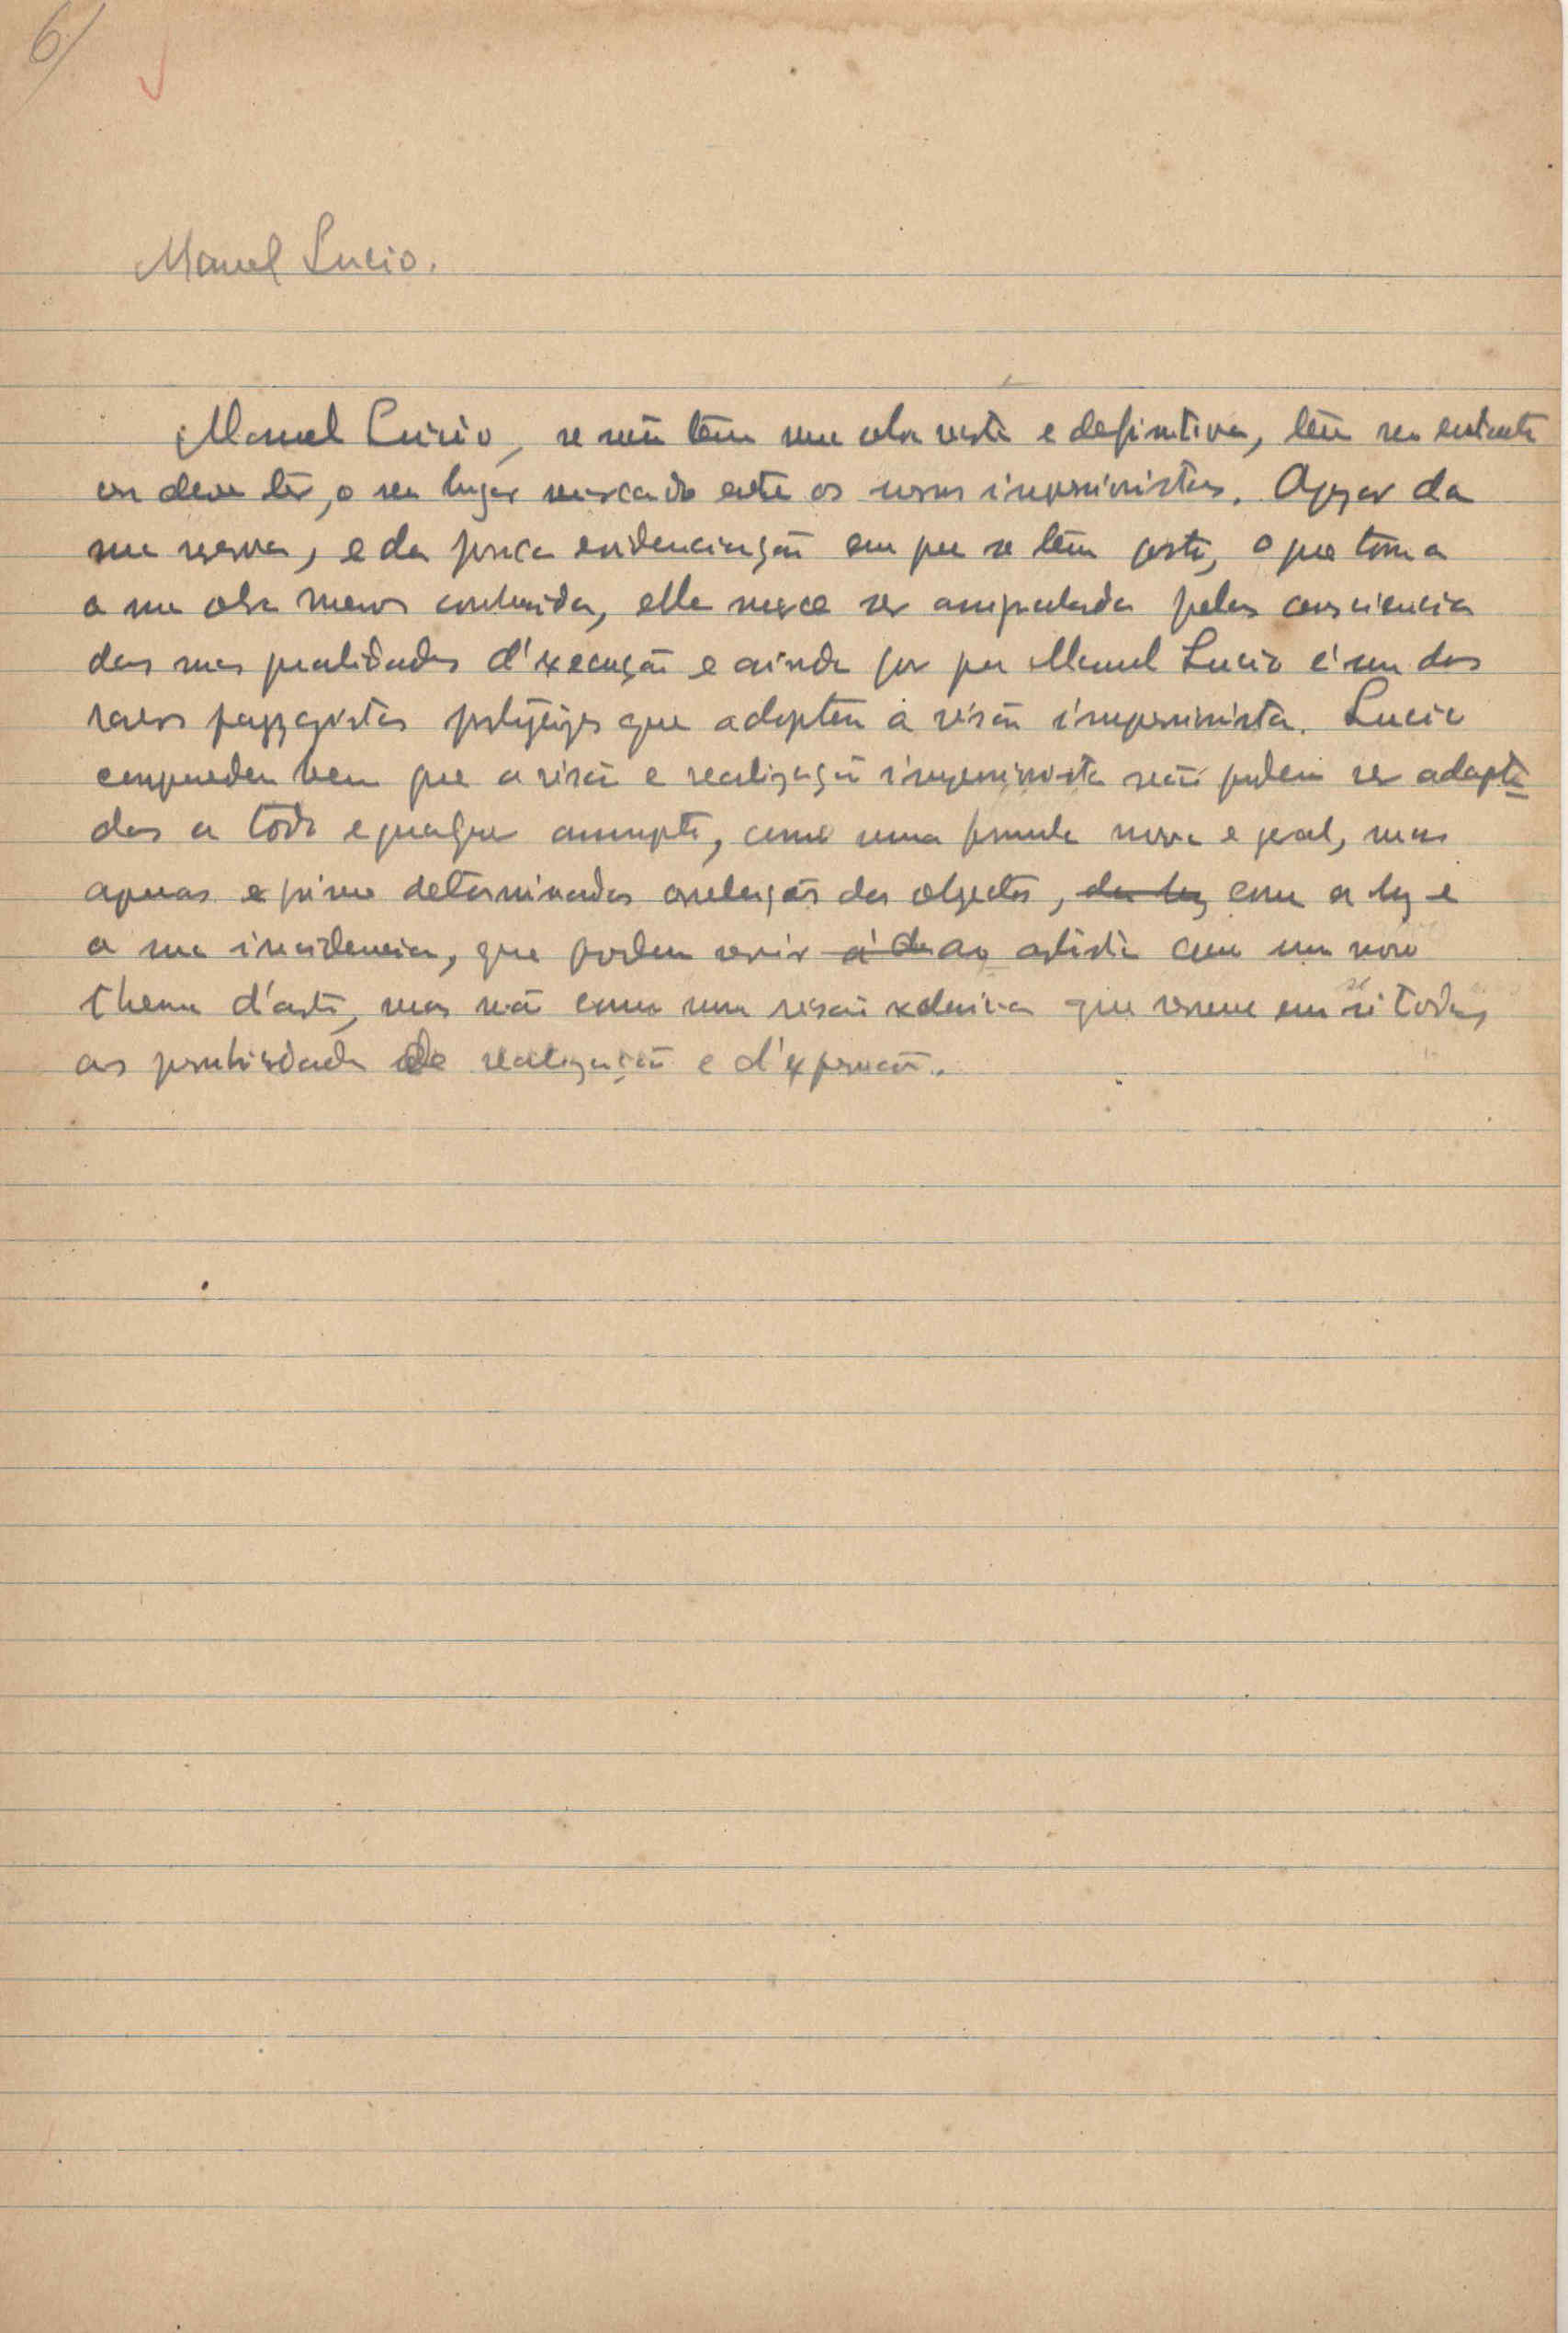 6/
Manuel Lucio.
Manuel Lucio, se não tem uma obra vasta e definitiva, tem no entanto
ou deve ter, o seu lugar marcado entre os nossos impressionistas. Apezar da
sua reserva, e da pouca evidenciação em que se tem posto, o que torna
a sua obra menos conhecida, elle merece ser pela consciencia
das suas qualidades d'execução e ainda por que Manuel Lucio é um dos
raros payzagistas portuguezes que adoptou a visão impressionista. Lucio
comprendeu bem que a visão e realização impressionista não podem ser adapta-
das a todo e qualquer assumpto, como uma formula nova e geral, mas
apenas exprime determinadas correlações dos objectos, da luz com a luz e
a sua incidencia, que podem servir á do ao artista com um novo
thema d'arte, mas não como uma visão exclusiva que resume em si todas
as possibilidades de realização e d'expressão.